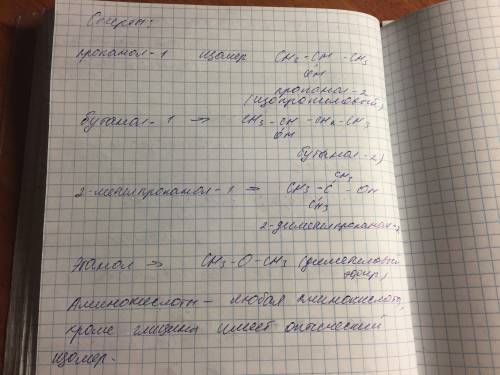 Спирты:
пропанол-1 изомер CH3 - CH - CH3
OH
пропанол-2
(изопропиловый)
бутанол-1 → CH3 - CH - CH2 - CH3
OH
бутанол-2)
CH3
2-метилпропанол-1 = CH3 - C - OH
CH3
2-диметилпропанол-2
Этанол → CH3 - O - CH3 (диметиловый
эфир)
Аминокислоты - любая аминокислота,
кроме глицина имеет оптический
изомер.